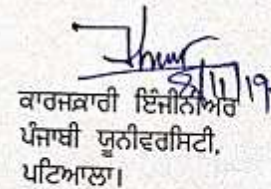 8/11/19
ਕਾਰਜਕਾਰੀ ਇੰਜੀਨੀਅਰ
ਪੰਜਾਬੀ ਯੂਨੀਵਰਸਿਟੀ,
ਪਟਿਆਲਾ।